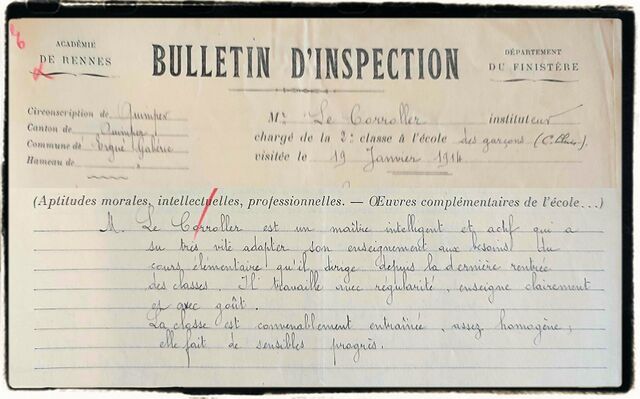 ACADÉMIE
DE RENNES
BULLETIN D'INSPECTION
DÉPARTEMENT
DU FINISTÈRE
Circonscription de Quimper
Canton de Quimper
Commune de Ergué Gabéric
Hameau de
Mr Le Corroller instituteur
chargé de la 2e classe à l'école des garçons
visitée le 19 Janvier 1914
(Aptitudes morales, intellectuelles, professionnelles. — Œuvres complémentaires de l'école...)
M. Le Corroller est un maître intelligent et actif qui a
su très vite adapter son enseignement aux besoins du
cours élémentaire qu'il dirige depuis la dernière rentrée
des classes. Il travaille avec régularité, enseigne clairement
et avec goût.
La classe est convenablement entraînée, assez homogène;
elle fait de sensibles progrès.